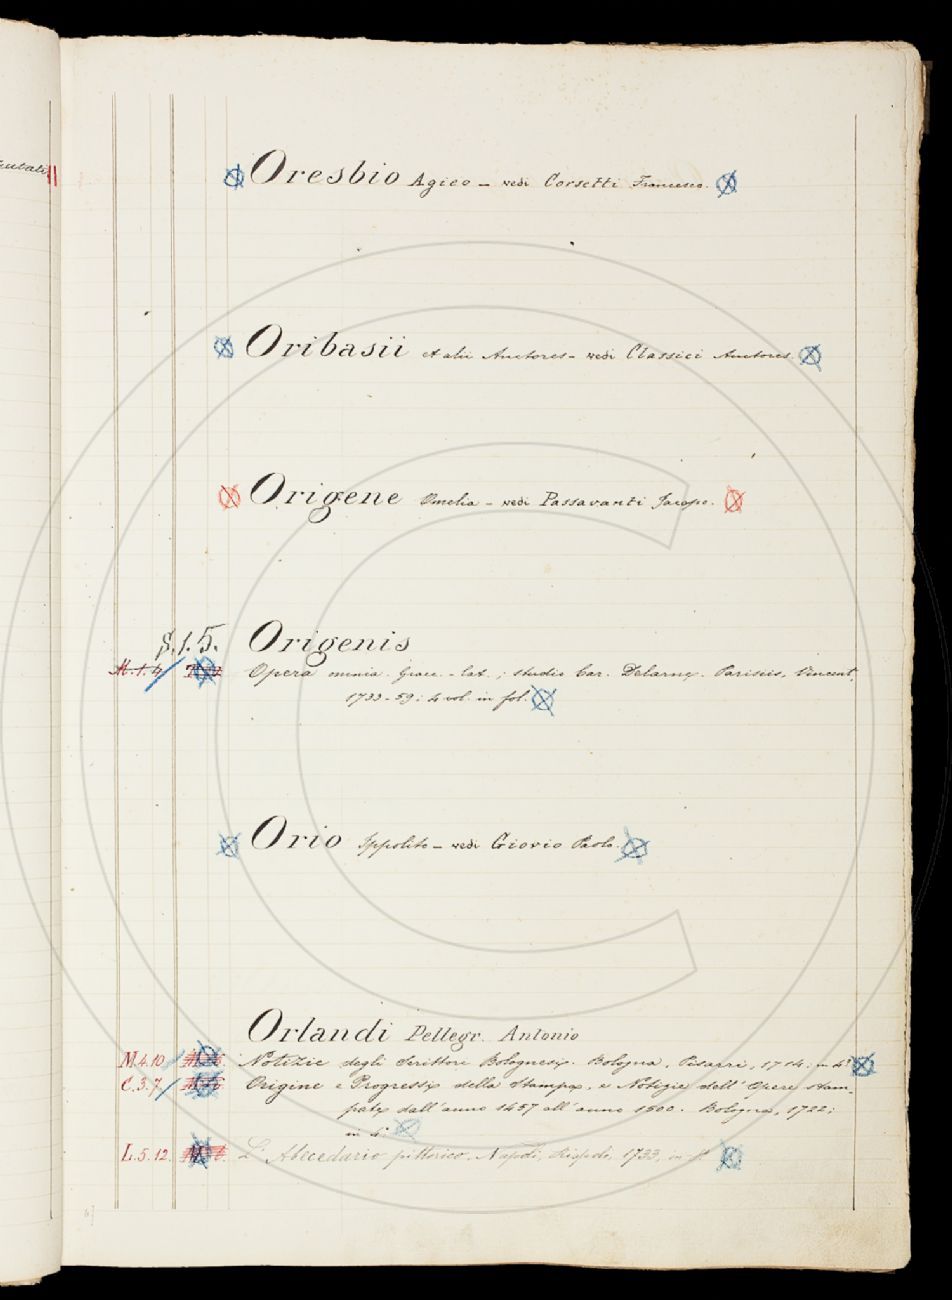 Oresbio Agieo - vedi Corsetti Francesco.
Oribasii et alii Auctores - vedi Classici Auctores.
Origene Omelia - vedi Passavanti Jacopo.
S.1.5. Origenis
M.1.4 Opera mnia. Graec. - lat.; studio Car. Delarux. Parisiis, Vincent,
1733-59; 4 vol. in fol.
Orio Ippolito - vedi Giovio Paolo.
Orlandi Pellegr. Antonio
M.4.10 Notizie degli Scrittore Bolognesi. Bologna, Pisarri, 1714; in 4°
C.3.7 Origine e Progressi della Stampa, e Notizie dell'Opere stam-
pate dall'anno 1457 all'anno 1600. Bologna, 1722;
in 4°
L.5.12. L'Abecedario pittorico. Napoli, 1733, in 4°